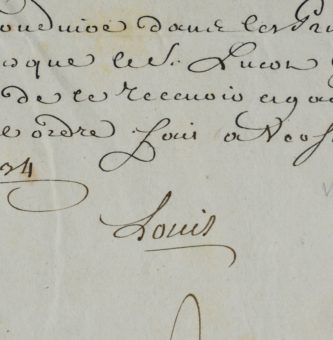 conduire dans les Pri
sque le S. Lucot
de le recevoir et ga
e ordre fait a Neo
34
Louis